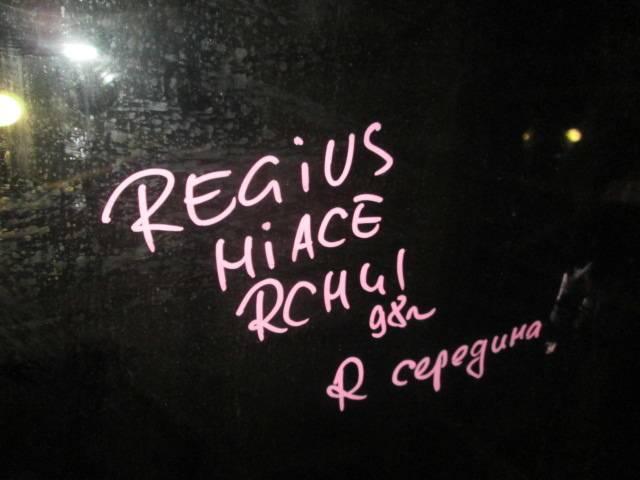 REGiUS
HiACE
RCH41
98г
R середина